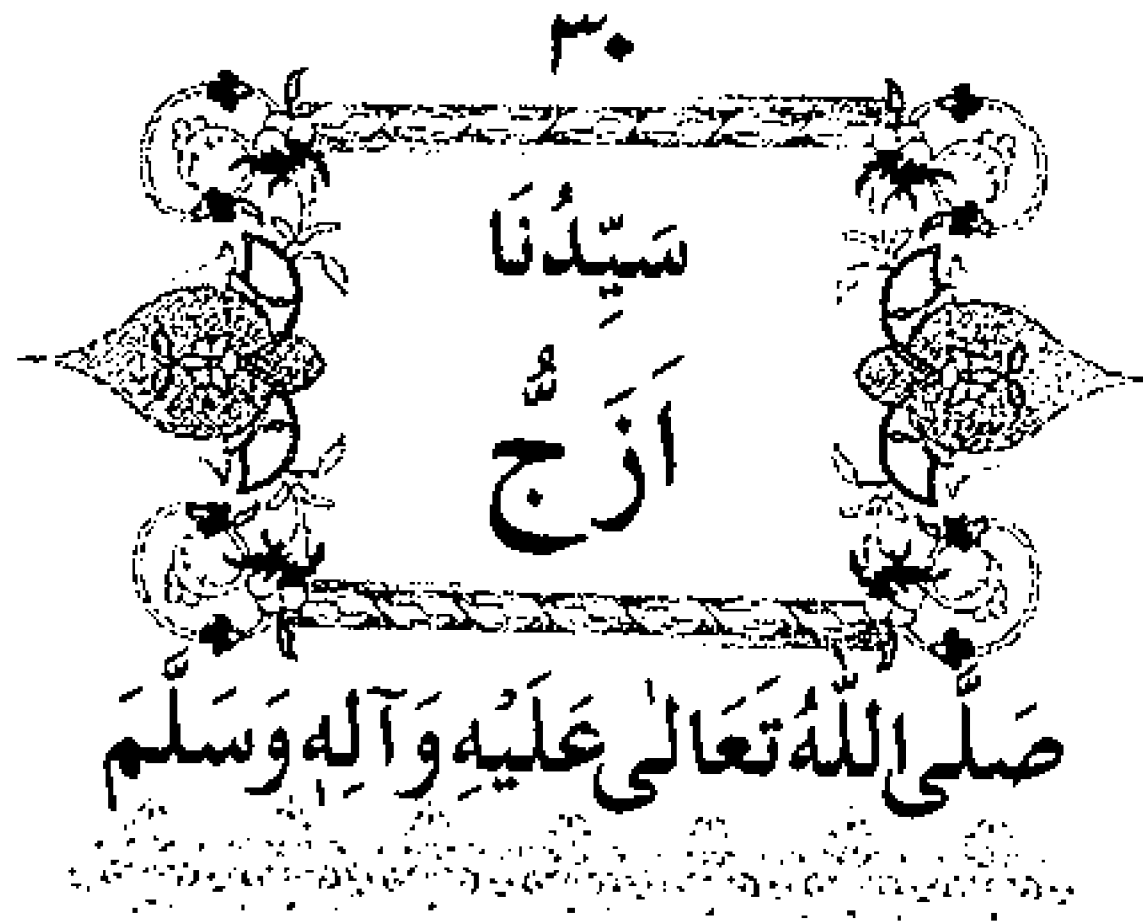 ۳۰
سَيِّدُنَا
اَزَجُّ
صَلَّى اللّٰهُ تَعَالٰى عَلَيْهِ وَآلِهٖ وَسَلَّمَ